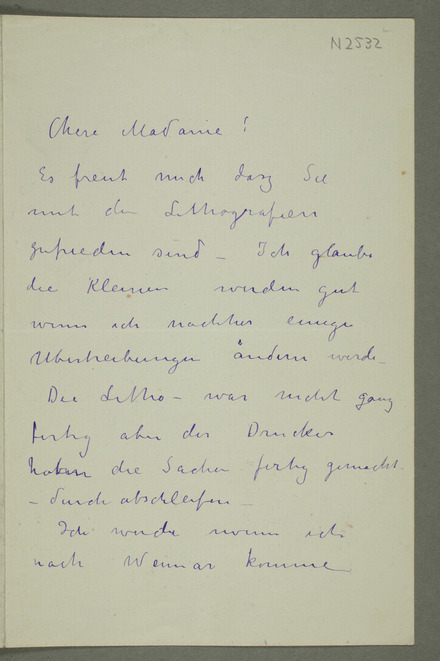 N2532
Chere Madame!
Es freut mich dasz Sie
mit den Lithografien
zufrieden sind – Ich glaube
die Kleinen werden gut
wenn ich nachher einige
Übertreibungen ändern werde –
Die Litho – war nicht ganz
fertig aber der Drucker
haben die Sachen fertig gemacht
– durch abschleifen –
Ich werde wenn ich
nach Weimar komme